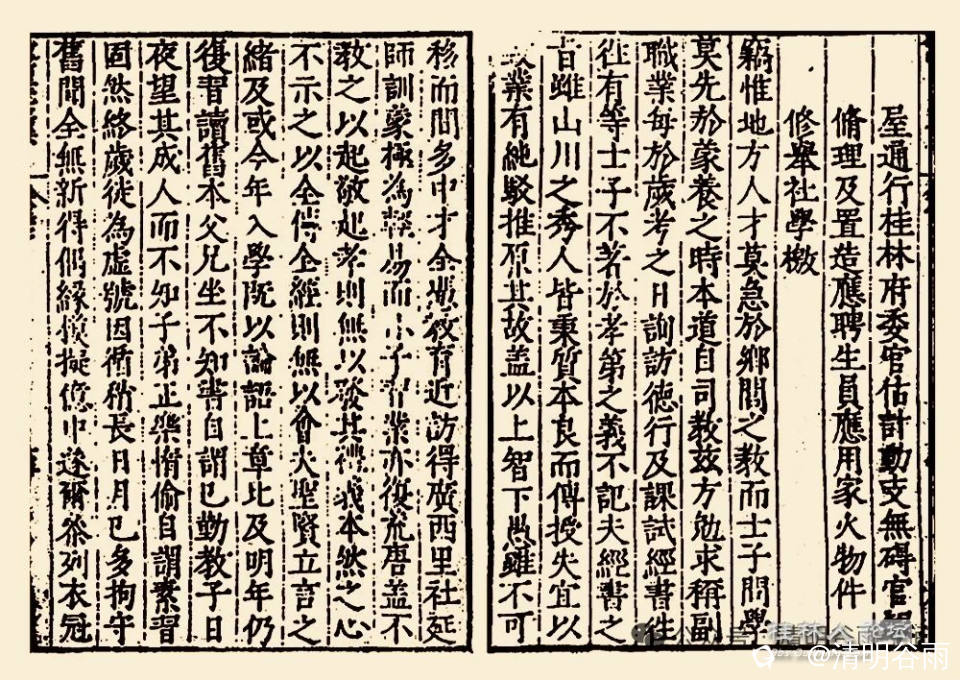 屋通行桂林府委官估計動支無碍官
脩理及置造應聘生員應用家火物件
修舉社學檄
竊惟地方人才莫急於鄉閭之教而士子問學
莫先於蒙養之時本道自司教茲方勉求稱副
職業每於歲考之日詢訪德行及課試經書徃
徃有等士子不著於孝弟之義不記夫經書之
旨雖山川之秀人皆秉質本良而傳授失宜以
業有純駁推原其故盖以上智下愚雖不可
移而間多中才全藉教育近訪得廣西里社延
師訓蒙極為輕忽而小子習業亦復荒唐盖不
教之以起敬起孝則無以發其禮義本然之心
不示之以全傳全經則無以會夫聖賢立言之
緒及或今年入學既以論語上章比及明年仍
復習讀舊本父兄坐不知書自謂已勤教子日
夜望其成人而不知子弟正樂惰偷自謂素習
固然終歲徒為虛號因循稍長日月已多拘守
舊聞全無新得仍緣模擬億中遂爾叅列衣冠
@清明谷雨